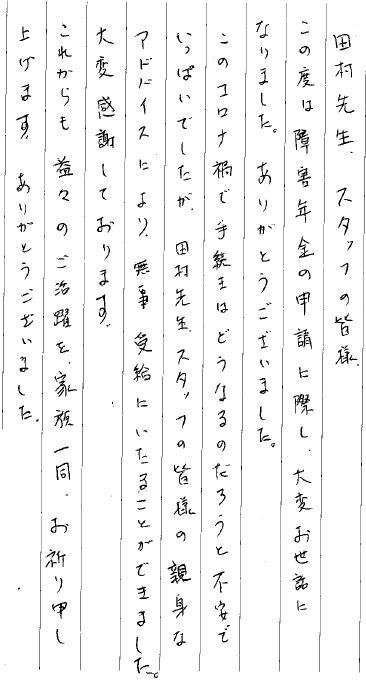 田村先生、スタッフの皆様、
この度は障害年金の申請に際し、大変お世話に
なりました。ありがとうございました。
このコロナ禍で手続きはどうなるのだろうと不安で
いっぱいでしたが、田村先生、スタッフの皆様の親身な
アドバイスにより、無事受給にいたることができました。
大変感謝しております。
これからも益々のご活躍を、家族一同、お祈り申し
上げます。ありがとうございました。